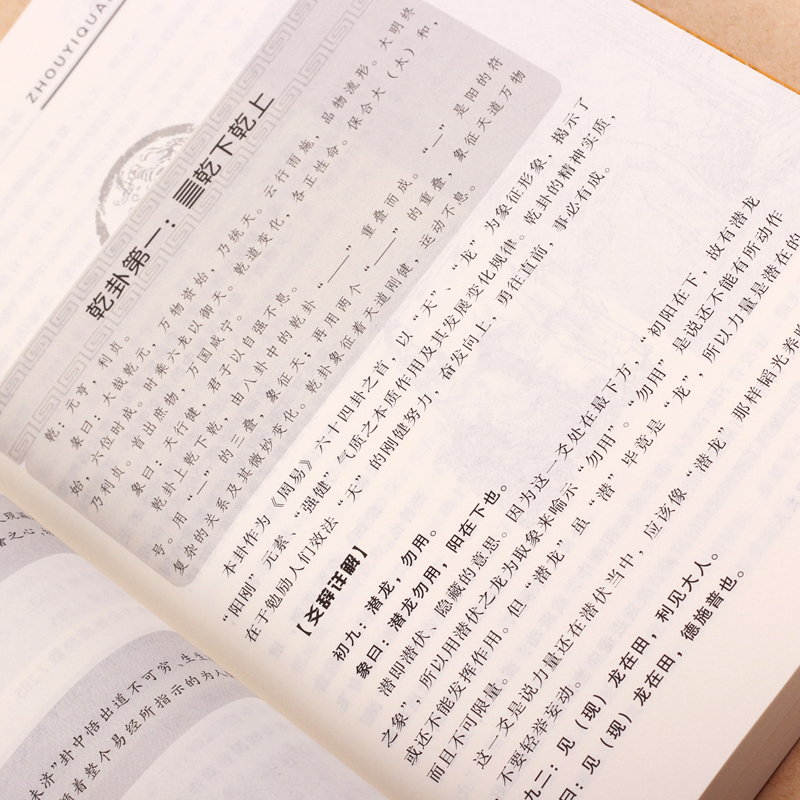 ZHOUYIQUA
乾卦第一：䷀乾下乾上
乾：元亨，利贞。
彖曰：大哉乾元，万物资始，乃统天。云行雨施，品物流形。大明终
始，六位时成。时乘六龙以御天。乾道变化，各正性命。保合大（太）和，
乃利贞。首出庶物，万国咸宁。
象曰：天行健，君子以自强不息。
乾卦上乾下乾，由八卦中的乾卦“☰”重叠而成。“—”是阳的符
号。用“—”的三叠，象征天；再用两个“☰”的重叠，象征天道万物
复杂的关系及其微妙变化。乾卦象征着天道刚健，运动不息。
本卦作为《周易》六十四卦之首，以“天”、“龙”为象征形象，揭示了
“阳刚”元素、“强健”气质之本质作用及其发展变化规律。乾卦的精神实质，
在于勉励人们效法“天”的刚健努力，奋发向上，勇往直前，事必有成。
【爻辞详解】
初九：潜龙，勿用。
象曰：潜龙勿用，阳在下也。
潜即潜伏、隐藏的意思。因为这一爻处在最下方，“初阳在下，故有潜龙
之象”，所以用潜伏之龙为取象来喻示“勿用”。“勿用”是说还不能有所动作
或还不能发挥作用。但“潜龙”虽“潜”毕竟是“龙”，所以力量是潜在的
而且不可限量。
这一爻是说力量还在潜伏当中，应该像“潜龙”那样韬光养
不要轻举妄动。
九二：见（现）龙在田，利见大人。
曰：见（现）龙在田，德施普也。
之心
未济”卦中悟出道不可穷、生生
着整个易经所指示的为人